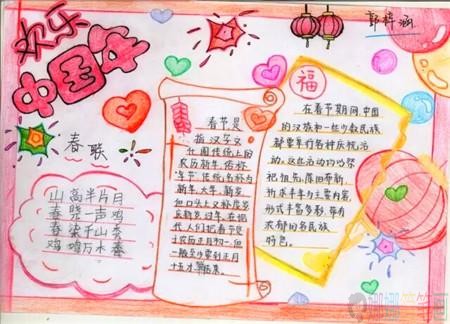 欢乐
中国年
郭梓涵
春联
山高半片月
春晓一声鸡
春染千山秀
鸡鸣万木春
春节是
指汉字文
化圈传统上的
农历新年,俗称
“年节”传统名称为
新年、大年、新岁
但口头上又称度岁
庆新岁、过年,在现
代人们把春节定
于农历正月初一,但
一般至少要到正月
十五才算结束。
福
在春节期间,中国
的汉族和一些少数民族
都要举行各种庆祝活
动。这些活动均以祭
祀祖先、除旧布新、
祈求丰年为主要内容,
形式丰富多彩,带有
浓郁的各民族
特色。